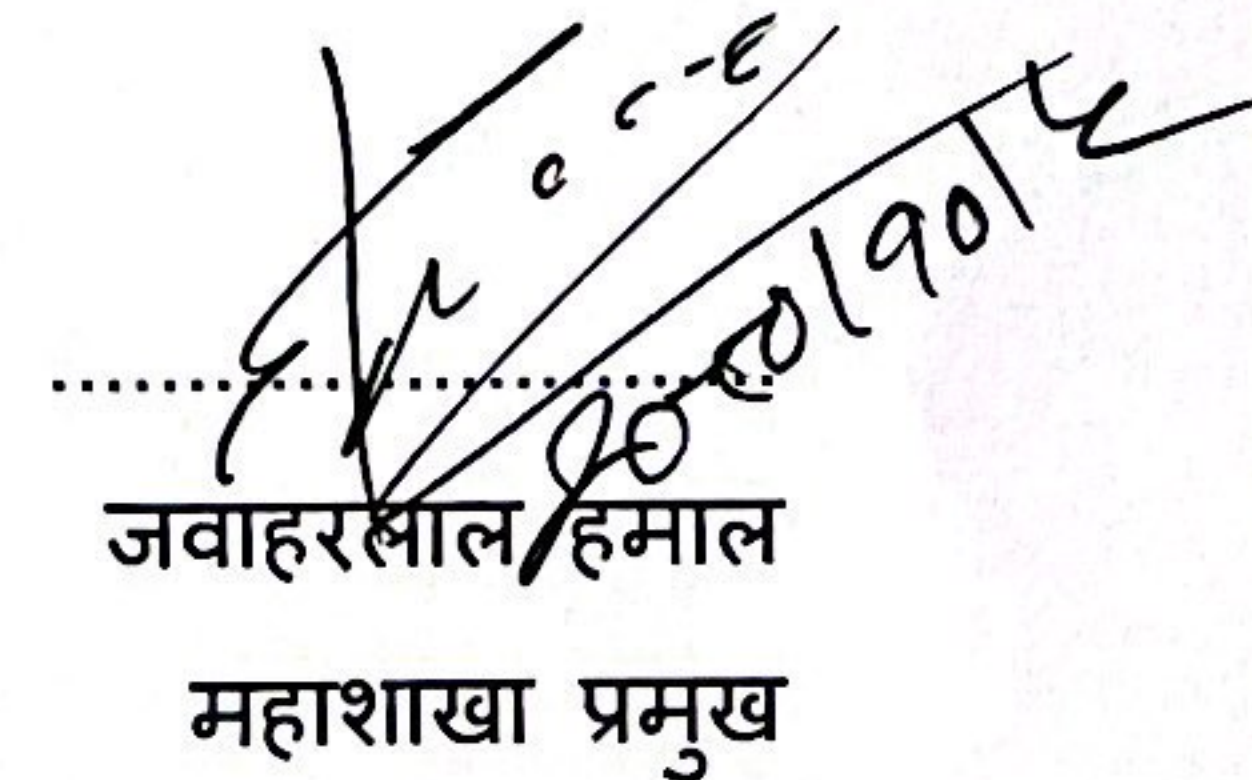 जवाहरलाल हमाल
महाशाखा प्रमुख